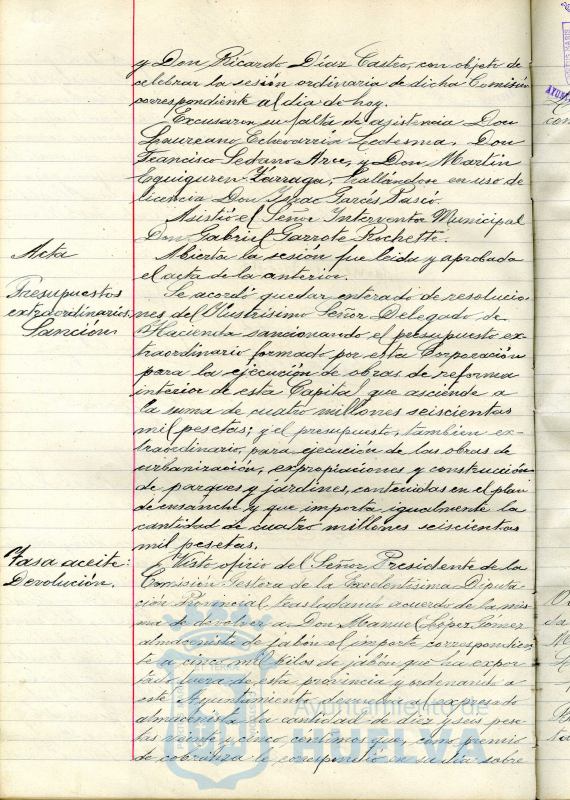 y Don Ricardo Díaz Castro, con objeto de
celebrar la sesión ordinaria de dicha Comisión
correspondiente al día de hoy.
Excusaron su falta de asistencia Don
Laureano Echevarría Ledesma, Don
Francisco Sedano Arce, y Don Martín
Eguiguren Yárraga, hallándose en uso de
licencia Don Isaac Garcés Tasió.
Asistió el Señor Interventor Municipal
Don Gabriel Garrote Rochette.
Acta
Abierta la sesión fue leida y aprobada
el acta de la anterior.
Presupuestos
extraordinarios,
Sanción
Se acordó quedar enterado de resolucio-
nes del Ilustrísimo Señor Delegado de
Hacienda sancionando el presupuesto ex-
traordinario formado por esta Corporación
para la ejecución de obras de reforma
interior de esta Capital que asciende a
la suma de cuatro millones seiscientas
mil pesetas; y el presupuesto, tambien ex-
traordinario, para ejecución de las obras de
urbanización, expropiaciones y construcción
de parques y jardines, contenidas en el plan
de ensanche y que importa igualmente la
cantidad de cuatro millones seiscientas
mil pesetas.
Tasa aceite:
Devolución.
Visto oficio del Señor Presidente de la
Comisión Gestora de la Excelentísima Diputa-
ción Provincial trasladando acuerdo de la mis-
ma de devolver a Don Manuel López Gómez
almacenista de jabón el importe correspondien-
te a cinco mil kilos de jabón que ha expor-
tado fuera de esta provincia y ordenando a
este Ayuntamiento devuelva al expresado
almacenista la cantidad de diez y seis pese-
tas veinte y cinco centimos que, como premio
de cobranza le correspondió en su día sobre
Ayuntamiento de
HUELVA